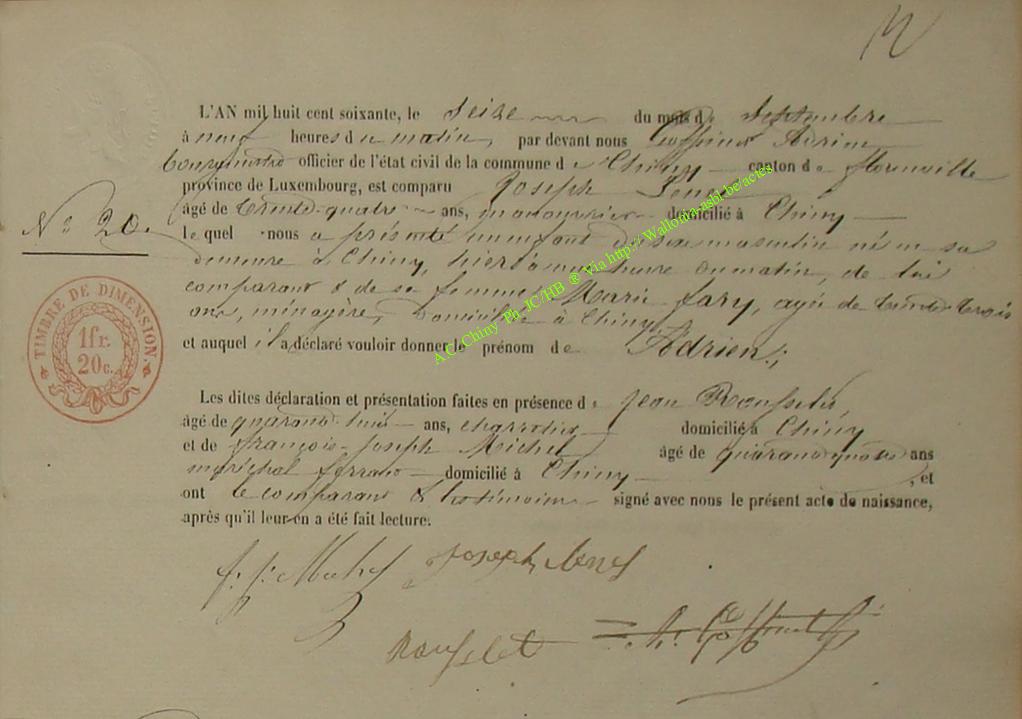 L'AN mil huit cent soixante, le seize du mois de Septembre
à neuf heures du matin, par devant nous Goffinet Adrien
bourgmestre officier de l'état civil de la commune de Chiny canton de florenville
province de Luxembourg, est comparu Joseph
âgé de trente-quatre ans, manouvrier domicilié à Chiny
N° 20.
lequel nous a présenté un enfant du sexe masculin né en sa
demeure à Chiny, hier à heure du matin, de lui
comparant & de sa femme Marie Jary, agée de trente trois
ans, ménagère, domiciliée à Chiny,
et auquel il a déclaré vouloir donner le prénom de Adrien;
TIMBRE DE DIMENSION.
1 fr.
20 c.
Les dites déclaration et présentation faites en présence de Jean
âgé de quarante ans, domicilié à Chiny
et de françois-Joseph Michel âgé de quarante quatre ans
maréchal ferrant domicilié à Chiny, et
ont le comparant & les témoins signé avec nous le présent acte de naissance,
après qu'il leur en a été fait lecture.
f. j. Michel Joseph
A. Goffinet
A.C. Chiny Ph JC/HB ® Via http://Wallonia-asbl-be/actes